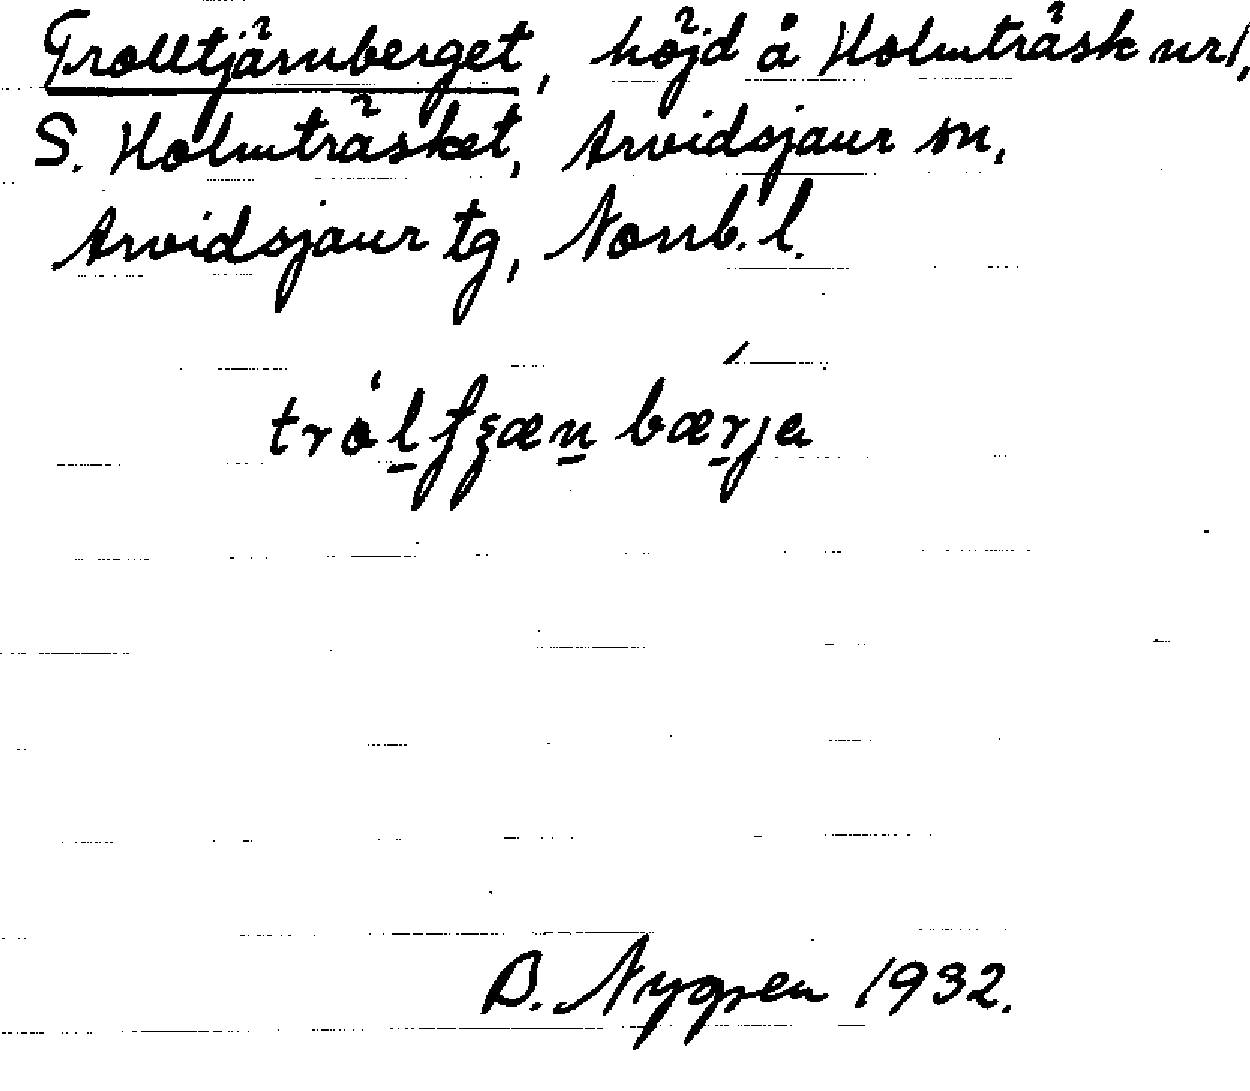 Trolltjärnberget, höjd å Holmträsk nr 1,
S. Holmträsket, Arvidsjaur sn,
Arvidsjaur tg, Norrb. l.
tròl̠ʃʒæn̠ bær̠ja
B. Nygren 1932.